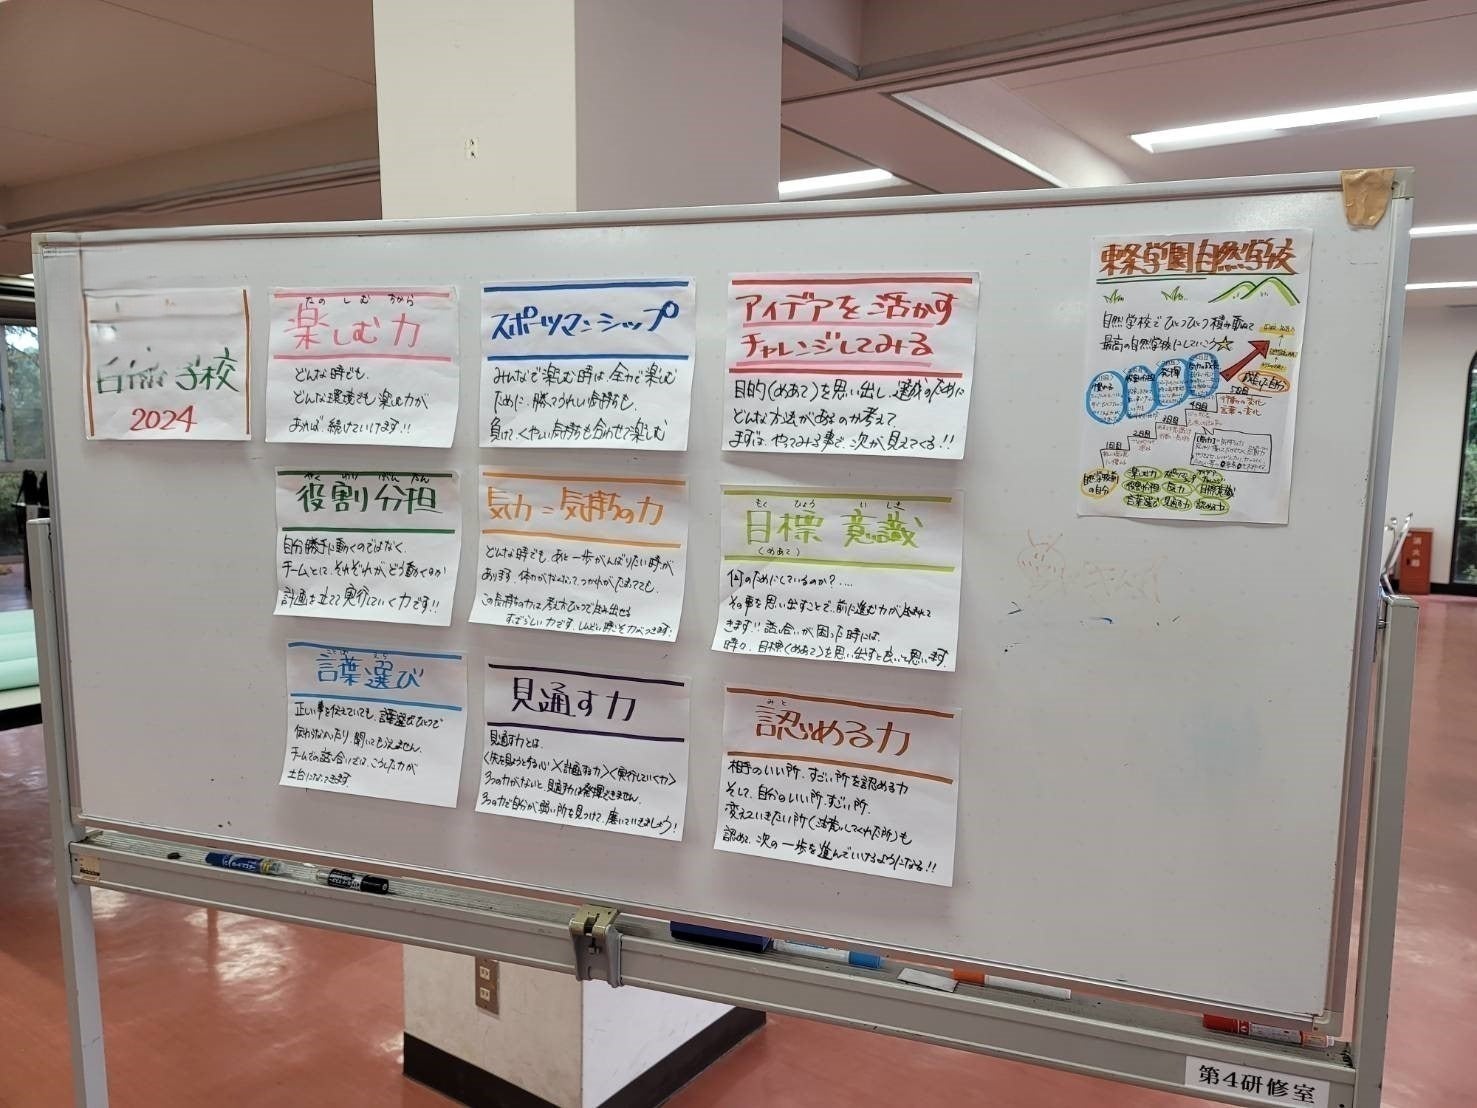 自然学校
2024
たの しむ ちから
楽しむ力
どんな時でも、
どんな環境でも楽しむ力が
あれば、続けていけます!!
スポーツマンシップ
みんなで楽しむ時は、全力で楽しむ
ために、勝てうれしい気持ちも、
負けて、くやしい気持ちも合わせて楽しむ
アイデアを活かす
チャレンジしてみる
目的(めあて)を思い出し、達成のために
どんな方法があるのか考えて
まずは、やってみる事で、次が見えてくる!!
やく わり ぶん たん
役割分担
自分勝手に動くのではなく、
チームとして、それぞれが、どう動くのか
計画を立てて実行していく力です!!
気力=気持ちの力
どんな時でも、あと一歩がんばりたい時が
あります。体力がなくなって、つかれがたまってても、
この気持ちの力は、考え方ひとつで生み出せる
すばらしい力です。
もく ひょう い しき
目標 意識
(めあて)
何のためにしているのか?....
その事を思い出すことで、前に進む力が生まれて
きます!! 話し合いが困った時には、
時々、目標(めあて)を思い出すと良いと思います。
ことば えら
言葉選び
正しい事を伝えていても、言葉選びひとつで
伝わらなかったり、聞いてもらえません。
チームでの話し合いでは、こうした力が
土台になってきます。
見通す力
見通す力とは、
〈先を見ようとする心〉×〈計画する力〉×〈実行していく力〉
3つの力がないと、見通す力は発揮できません。
3つの力で自分が弱い所を見つけて、磨いていきましょう!
みと
認める力
相手のいい所、すごい所を認める力
そして、自分のいい所、すごい所、
変えていきたい所(注意してくれた所)も
認めて、次の一歩を進んでいけるようになる!!
東条学園自然学校
自然学校でひとつひとつ積み重ねて
最高の自然学校にしていこう☆
成長した自分
5日目
行動の変化
言葉の変化
4日目
3日目
2日目
1日目
自然学校前
の自分
楽しむ力
役割分担
気力
目標意識
言葉選び
見通す力
認める力
消火器
第4研修室